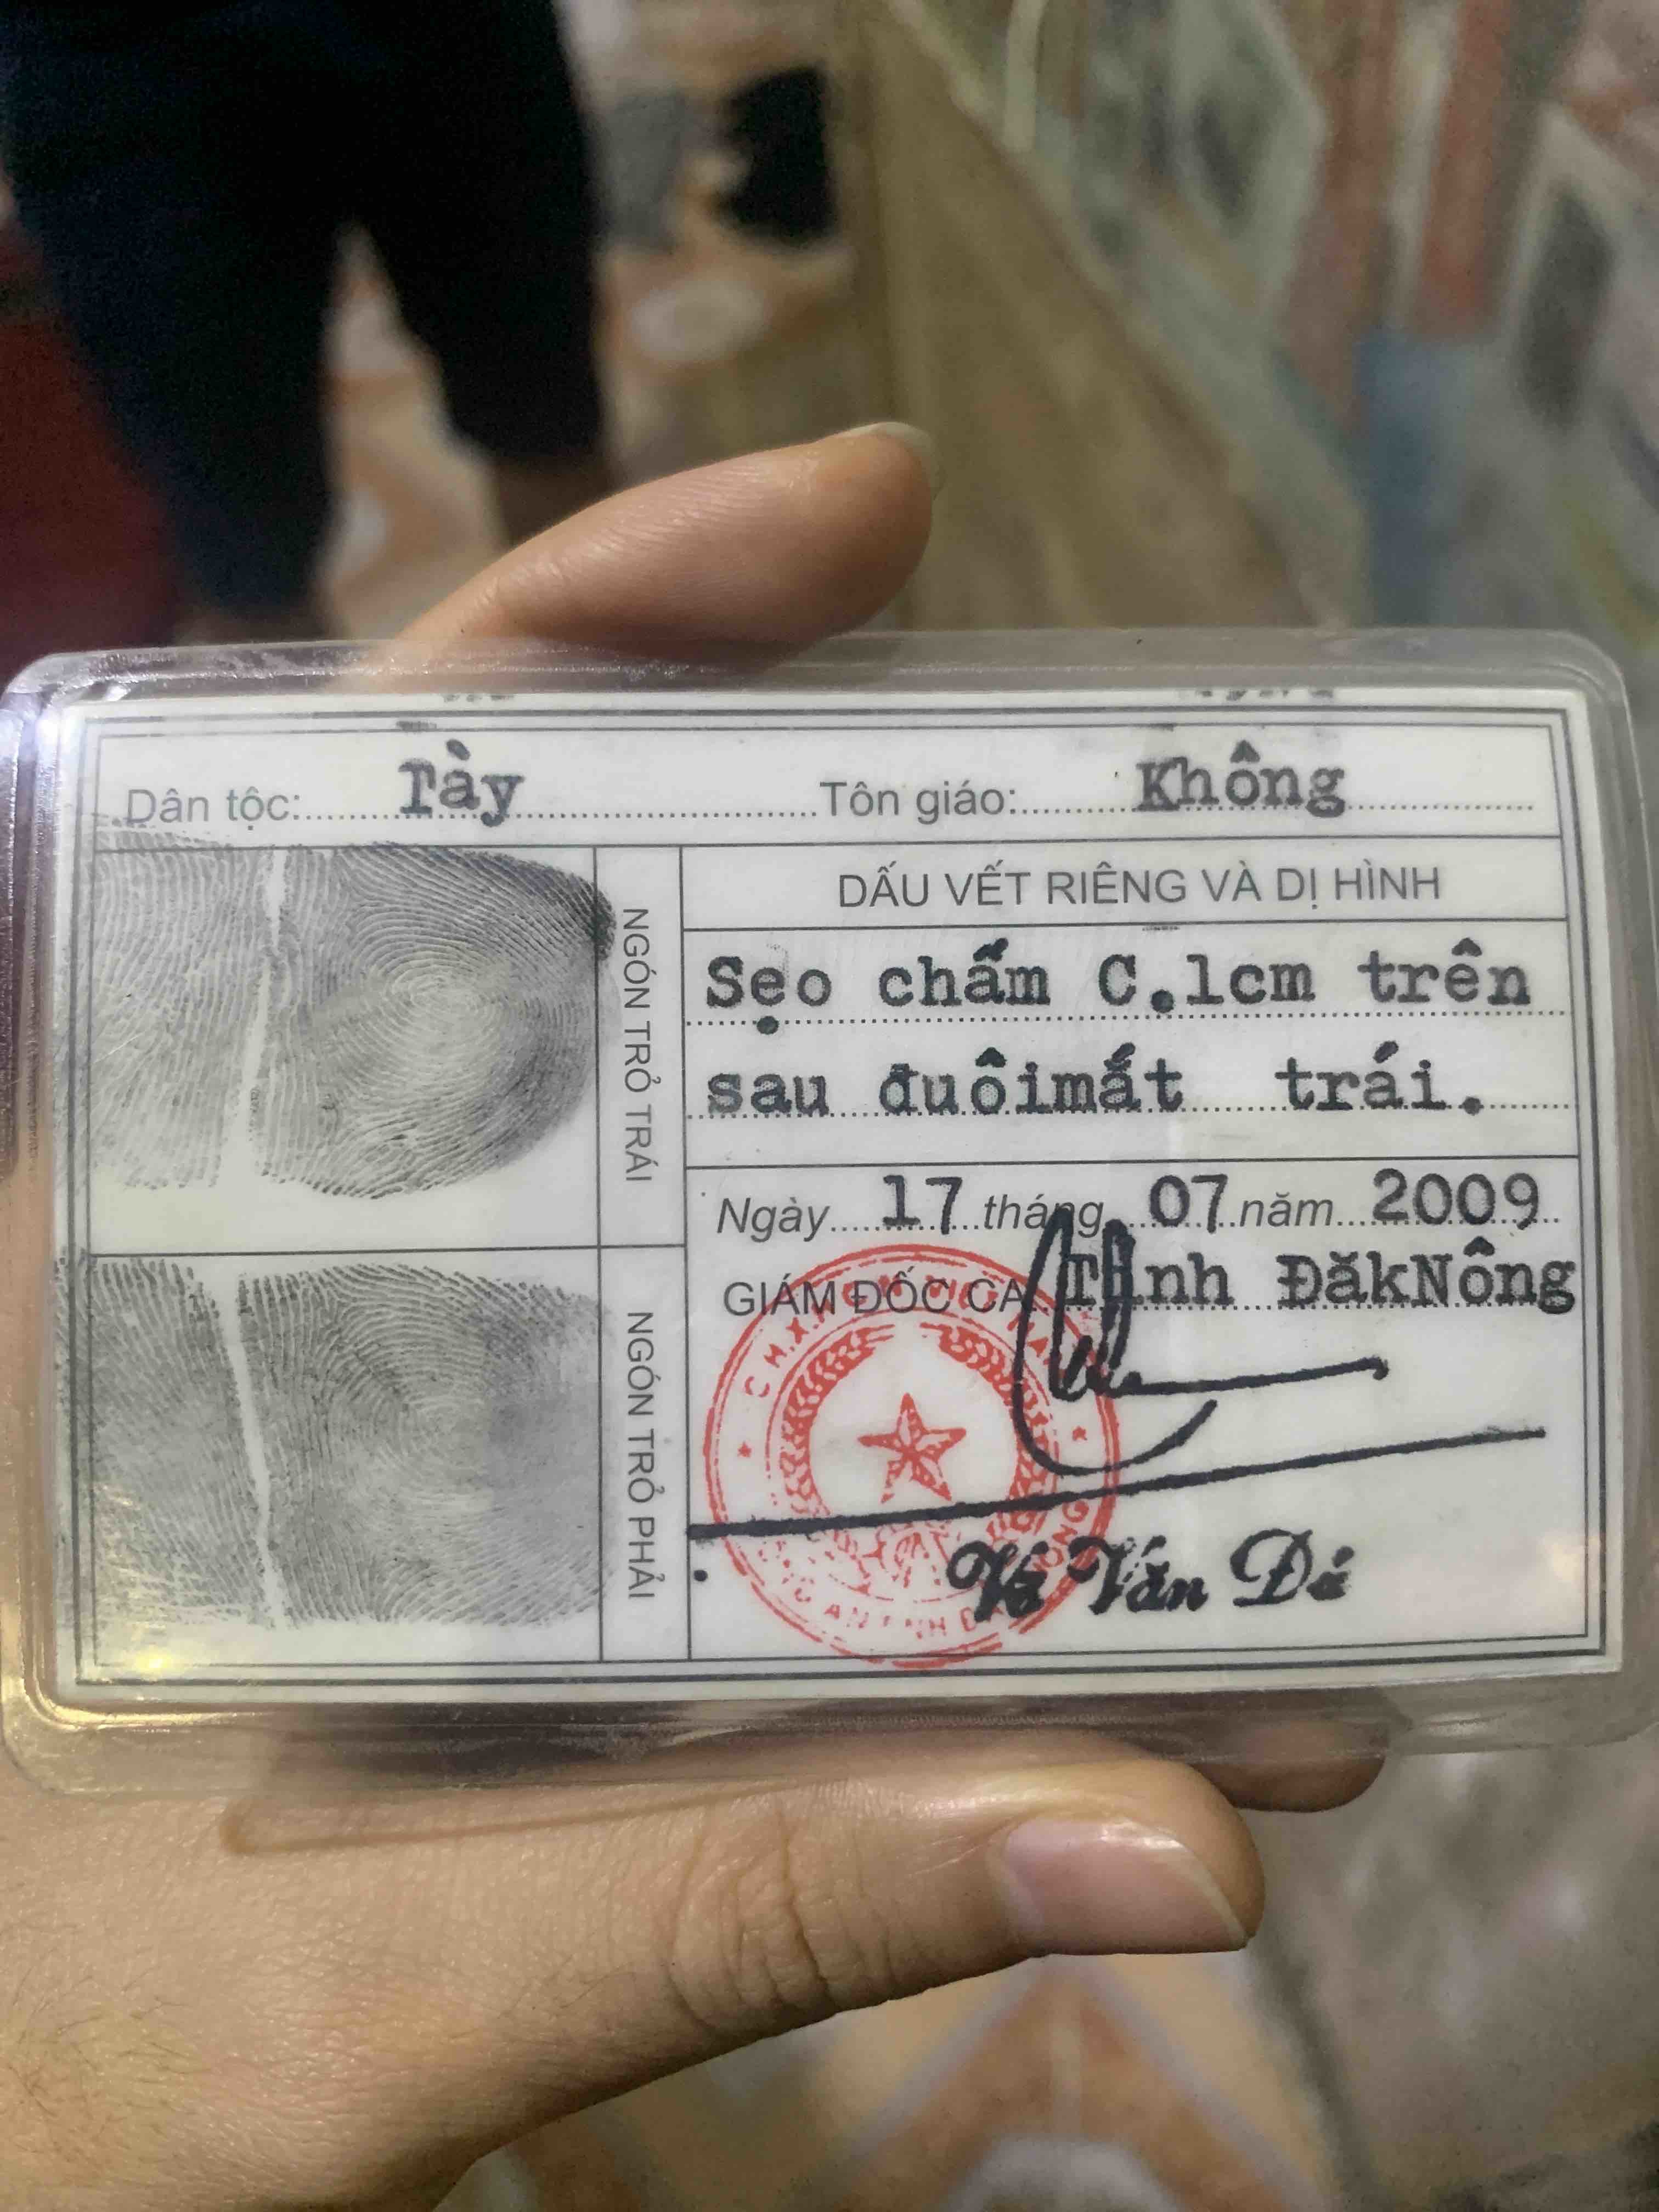 Dân tộc: Tày Tôn giáo: Không
NGÓN TRỎ TRÁI
DẤU VẾT RIÊNG VÀ DỊ HÌNH
Sẹo chấm C.1cm trên
sau đuôimắt trái.
Ngày 17 tháng 07 năm 2009
GIÁM ĐỐC CA Tỉnh ĐăkNông
NGÓN TRỎ PHẢI
C.H.X.H
Võ Văn Đủ